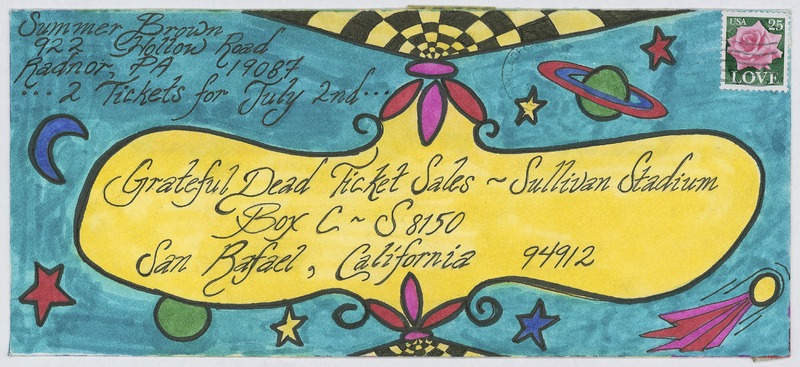 Summer Brown
922 Hollow Road
Radnor, PA 19087
... 2 Tickets for July 2nd...
USA 25
LOVE
Grateful Dead Ticket Sales ~ Sullivan Stadium
Box C ~ S 8150
San Rafael, California 94912